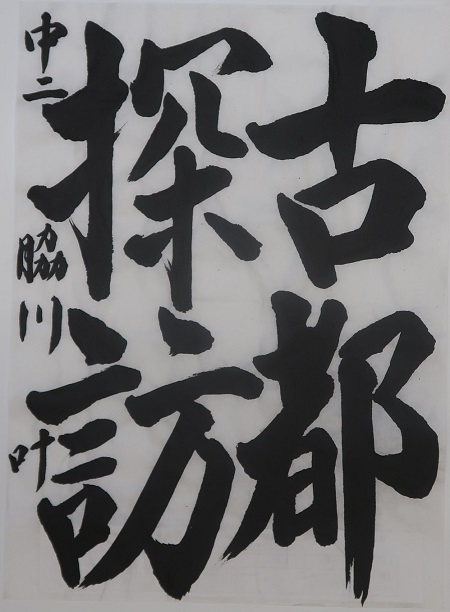 古都
探訪
中二 脇川 叶